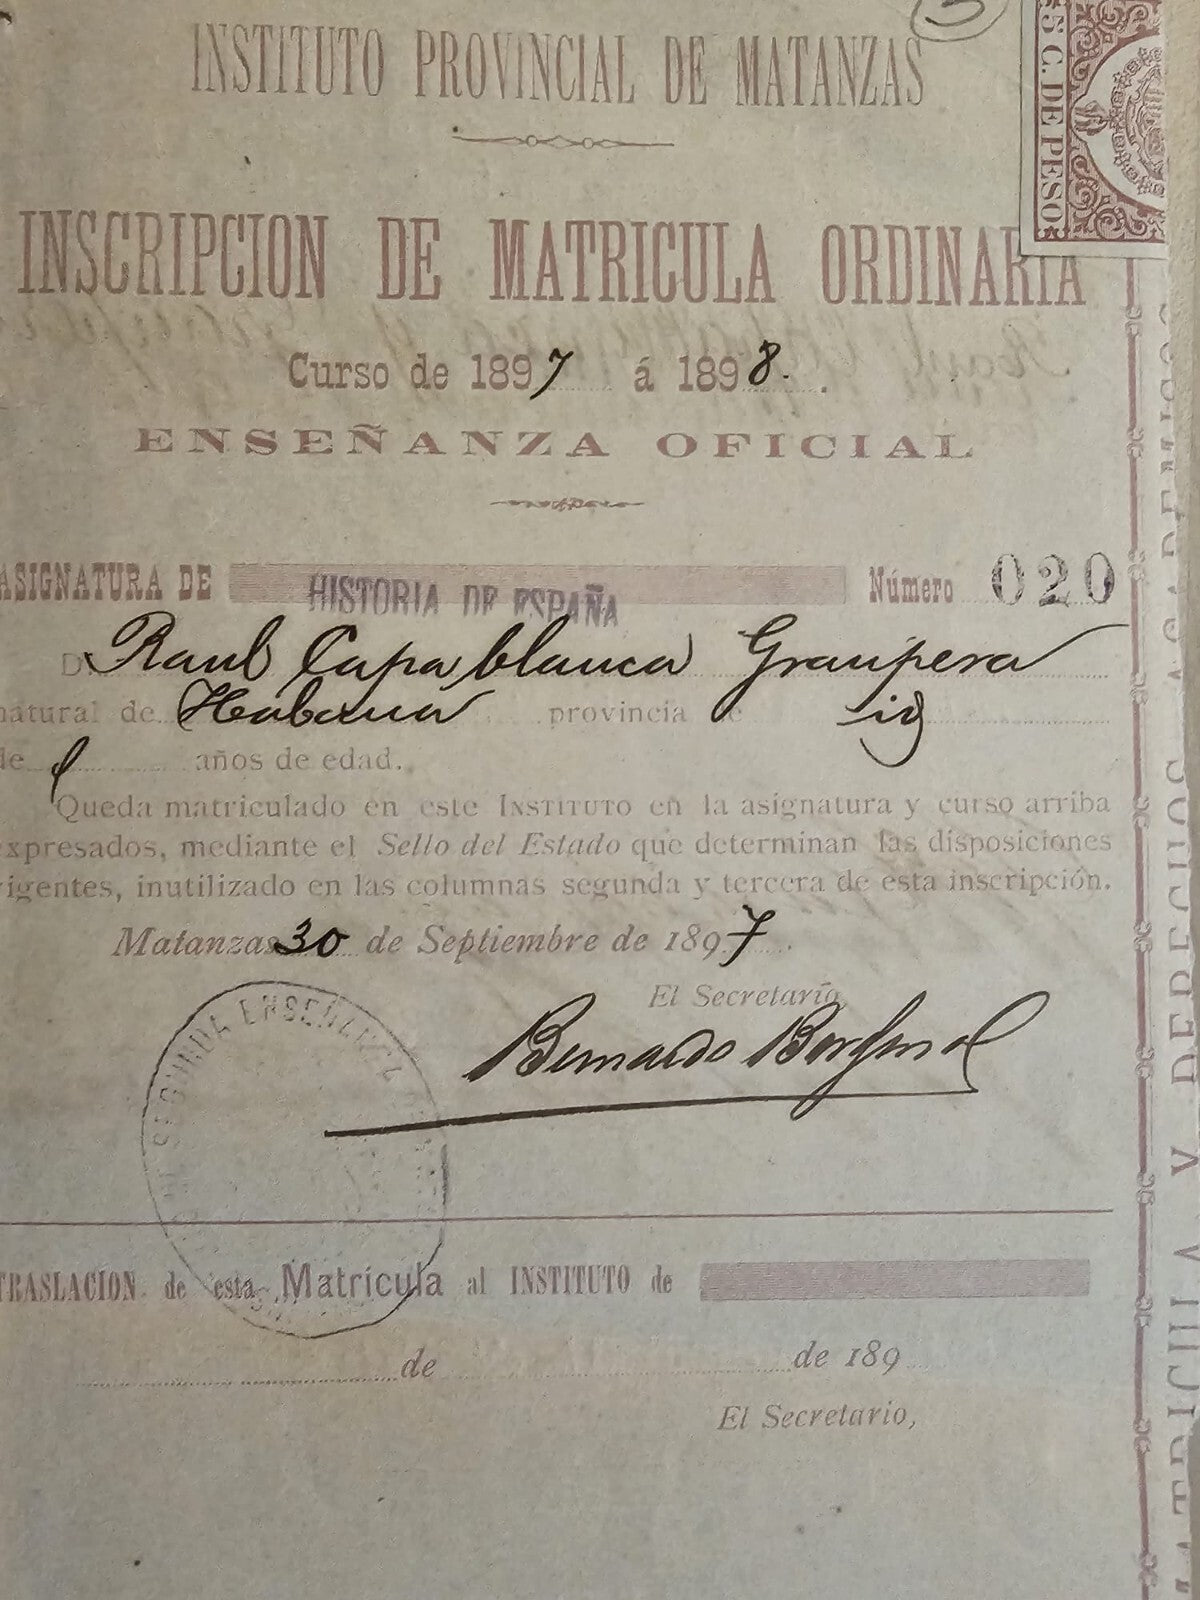 INSTITUTO PROVINCIAL DE MATANZAS
5 C. DE PESO
INSCRIPCION DE MATRICULA ORDINARIA
Curso de 1897 á 1898.
ENSEÑANZA OFICIAL
ASIGNATURA DE HISTORIA DE ESPAÑA Número 020
D. Raul Capablanca Graupera
natural de Habana provincia de id
de años de edad.
Queda matriculado en este INSTITUTO en la asignatura y curso arriba
expresados, mediante el Sello del Estado que determinan las disposiciones
vigentes, inutilizado en las columnas segunda y tercera de esta inscripción.
Matanzas 30 de Septiembre de 1897.
El Secretario,
Bernardo
SEGUNDA ENSEÑANZA
TRASLACION de esta Matrícula al INSTITUTO de
de de 189
El Secretario,
MATRICULA Y DERECHOS ACADEMICOS